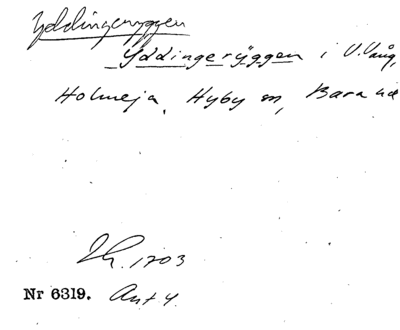 Yddingeryggen
Yddingeryggen i V. Vång,
Holmeja, Hyby sn, Bara hd
Lh. 1703
Nr 6319. Avt 4.